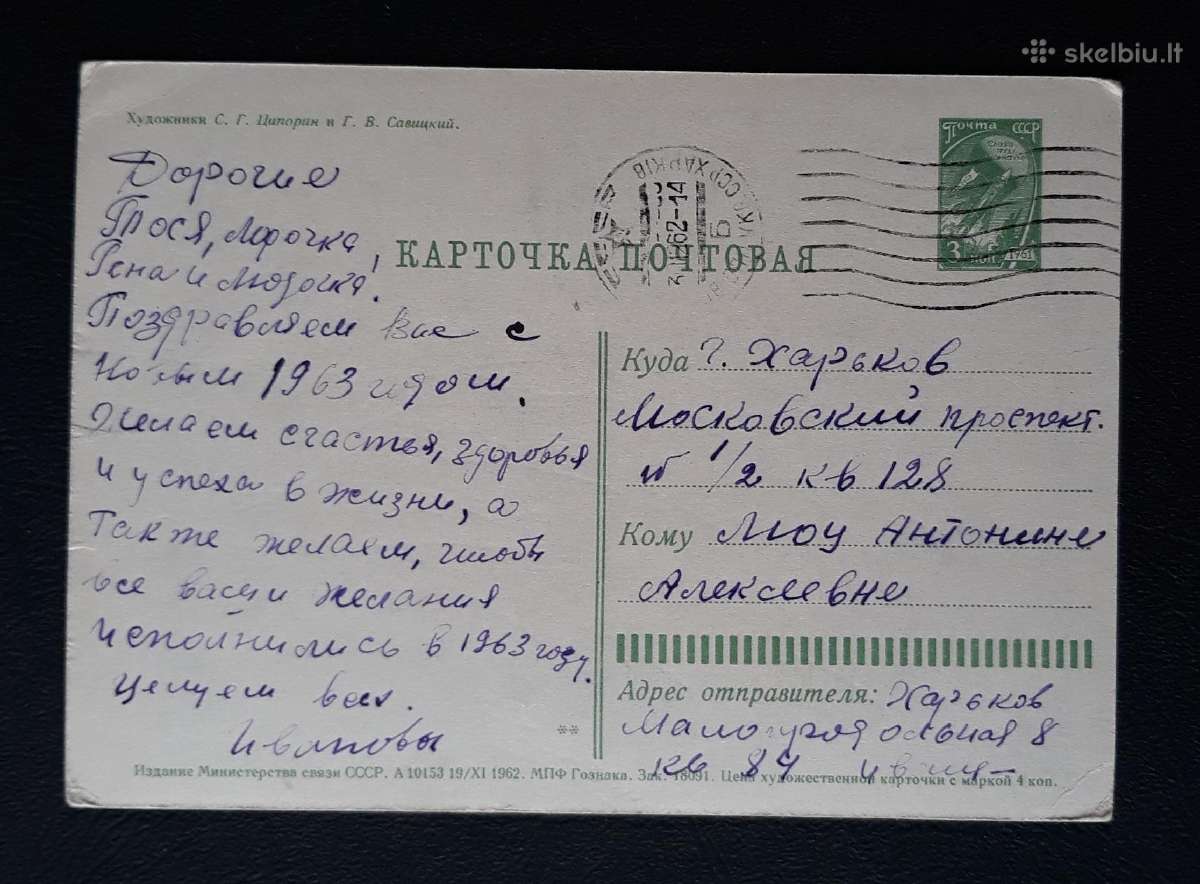 skelbiu.lt
Художники С. Г. Ципорин и Г. В. Савицкий.
Дорогие
Тося, Лорочка,
Гена и Людочка!
Поздравляем Вас с
Новым 1963 годом.
Желаем счастья, здоровья
и успеха в жизни, а
также желаем, чтобы
все ваши желания
исполнились в 1963 году.
Целуем вас.
Ивановы
Почта СССР
3 коп
1961
ССР ХАРКІВ
62-14
КАРТОЧКА ПОЧТОВАЯ
Куда г. Харьков
Московский проспект.
1/2 кв 128
Кому Антонине
Алексеевне
Адрес отправителя: Харьков
8
кв 84
Издание Министерства связи СССР. А 10153 19/XI 1962. МПФ Гознака. Зак. 18091. Цена художественной карточки с маркой 4 коп.